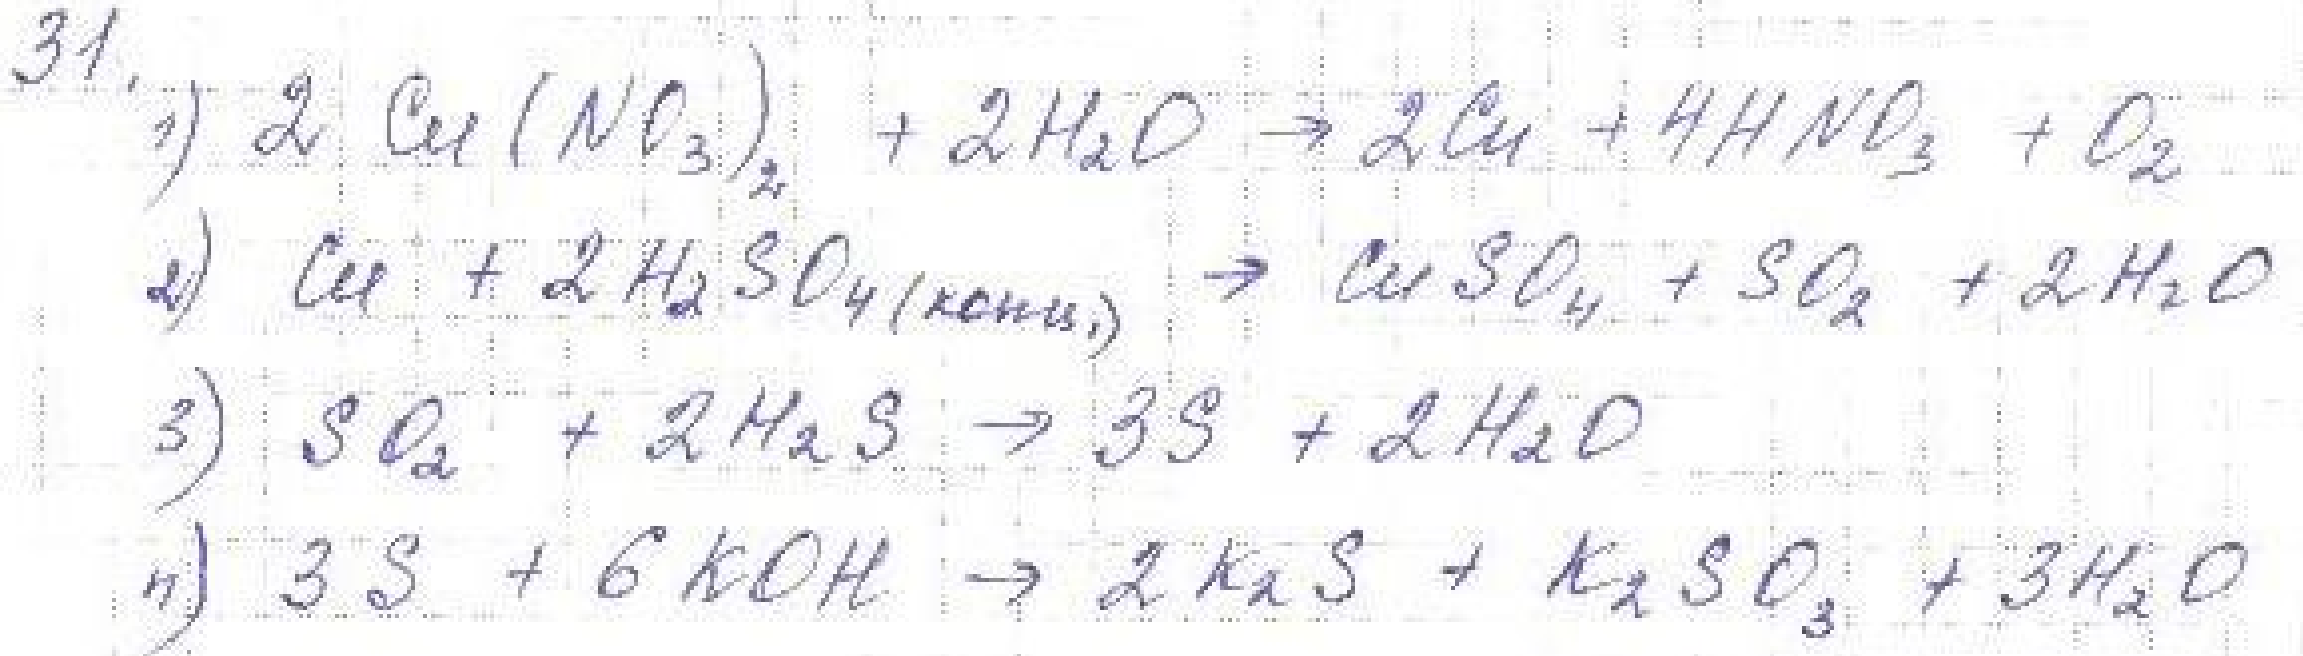 31.
1) 2 Cu(NO₃)₂ + 2H₂O → 2Cu + 4HNO₃ + O₂
2) Cu + 2H₂SO₄(конц.) → CuSO₄ + SO₂ + 2H₂O
3) SO₂ + 2H₂S → 3S + 2H₂O
4) 3S + 6KOH → 2K₂S + K₂SO₃ + 3H₂O